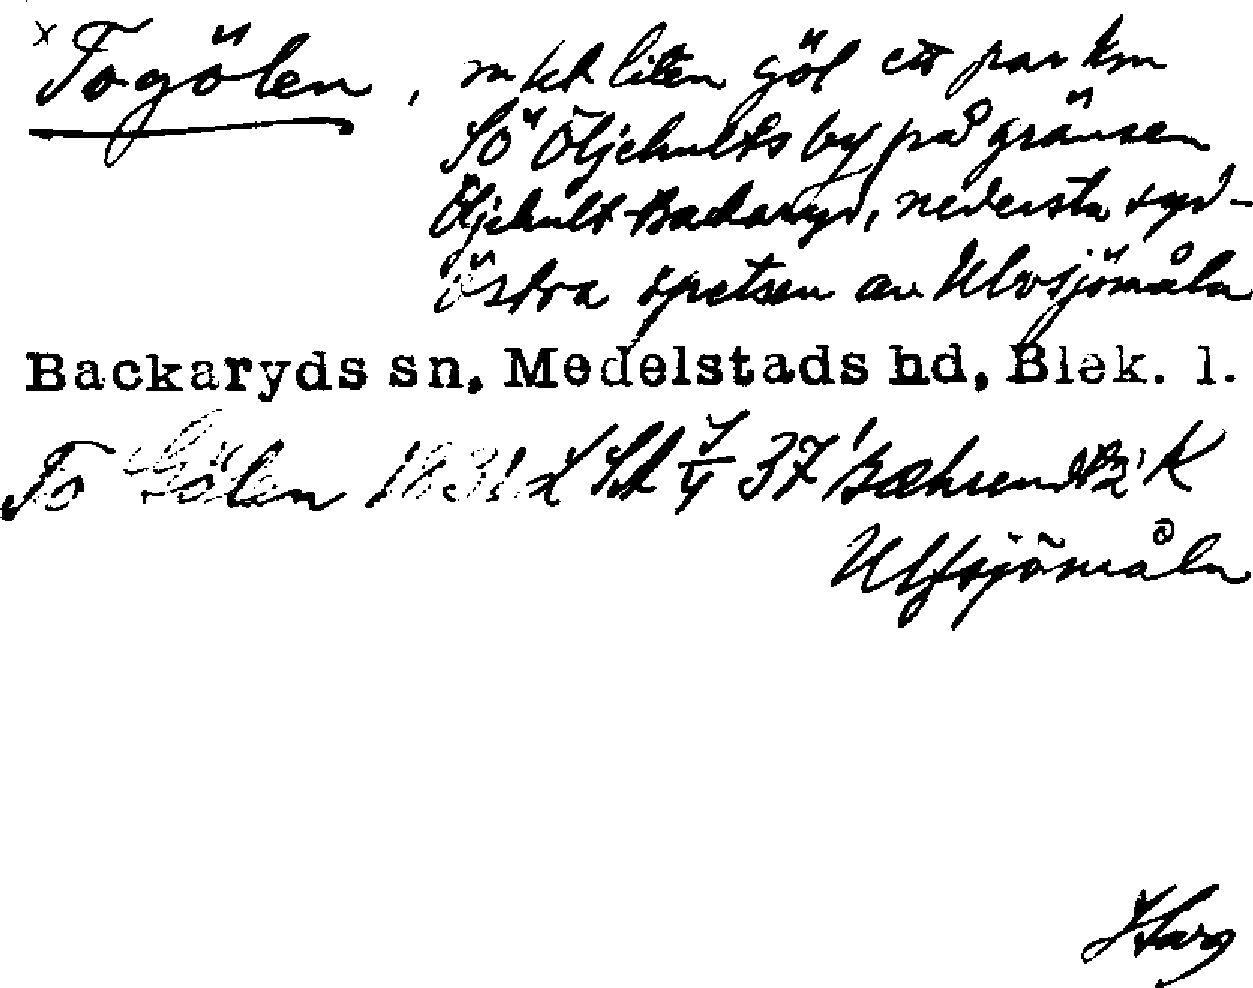 x Togölen, mkt liten göl ett par km
SÖ Öljehults by på gränsen
Öljehult-Backaryd, nedersta syd-
östra spetsen av Ulvsjömåla
Backaryds sn, Medelstads hd, Blek. l.
To Gölen 1831 37 K
Ulfsjömåla